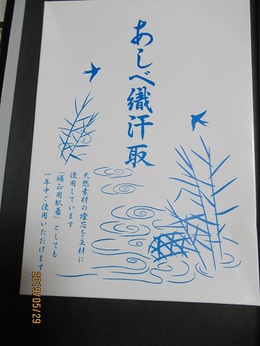 あしべ織汗取
天然素材の燈芯を主材に
使用しています
「補正用肌着」としても
一年中ご使用いただけます
2019/05/29